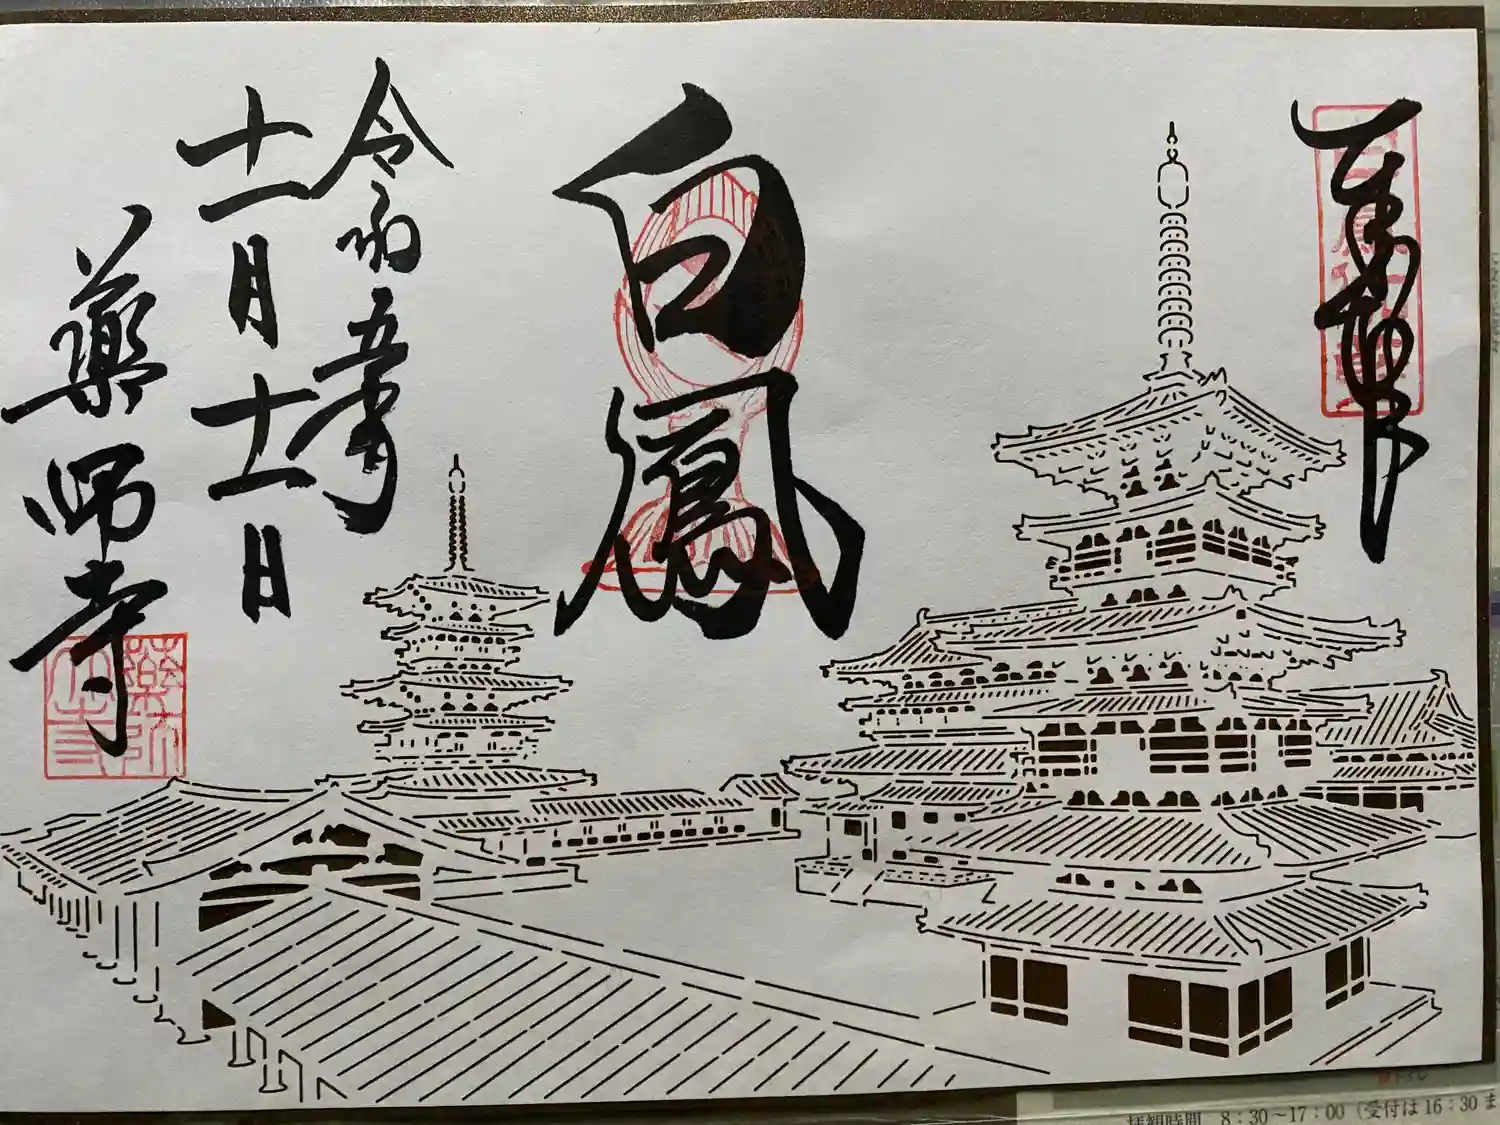 奉拝
白鳳
令和五年
十一月十一日
薬師寺
拝観時間 8:30～17:00（受付は16:30ま